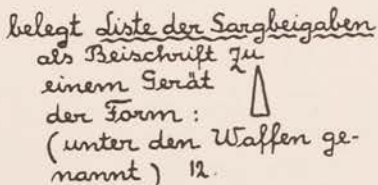 belegt Liste der Sargbeigaben
als Beischrift zu
einem Gerät
der Form:
(unter den Waffen ge-
nannt) 12.